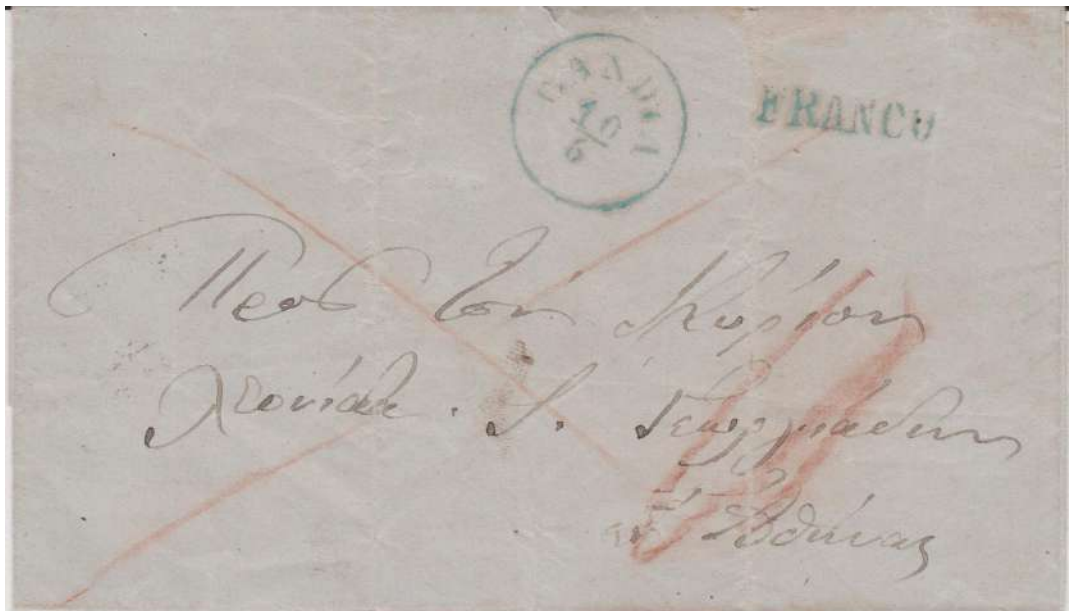 CANDIA
10
6
FRANCO
Προς τον Κύριον
Λεονίδα. Γεωργιάδην
Αθήνας